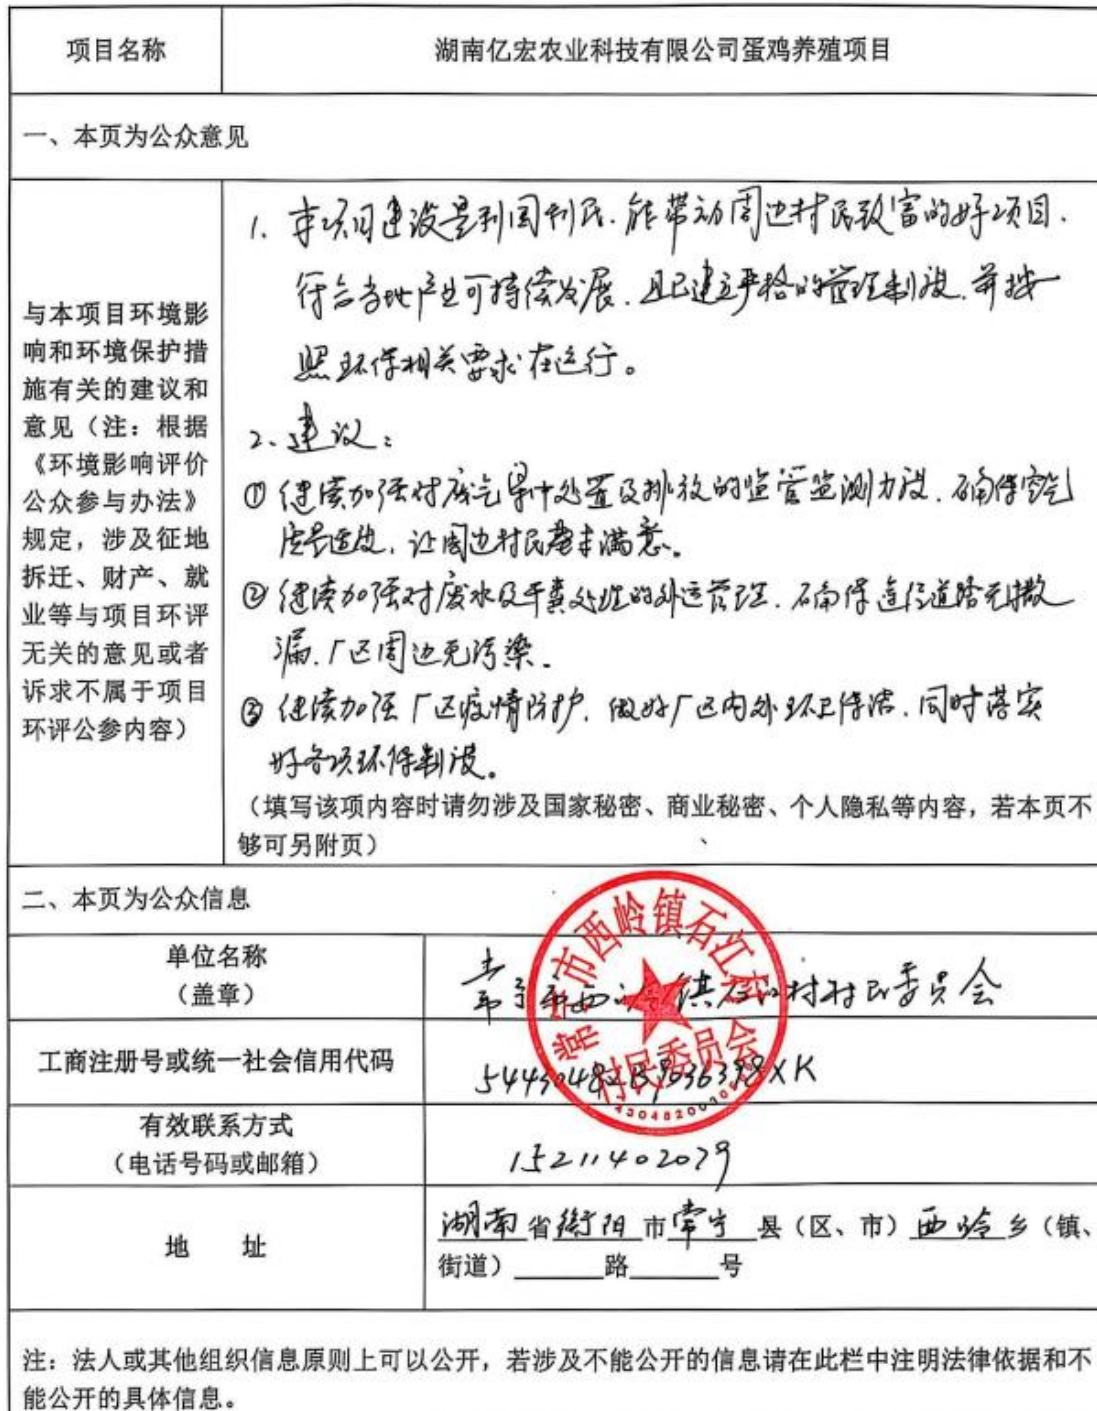 项目名称
湖南亿宏农业科技有限公司蛋鸡养殖项目
一、本页为公众意见
与本项目环境影
响和环境保护措
施有关的建议和
意见（注：根据
《环境影响评价
公众参与办法》
规定，涉及征地
拆迁、财产、就
业等与项目环评
无关的意见或者
诉求不属于项目
环评公参内容）
1. 本项目建设是利国利民.能带动周边村民致富的好项目.
符合当地产业可持续发展.且已建立严格的管理制度.并按
照环保相关要求在运行。
2、建议：
① 继续加强对废气集中处置及排放的监管监测力度.确保空气
质量，让周边村民基本满意。
② 继续加强对废水及干粪处理的外运管理.确保途径道路无撒
漏.厂区周边无污染.
③ 继续加强厂区疫情防护.做好厂区内外环卫保洁.同时落实
好各项环保制度。
（填写该项内容时请勿涉及国家秘密、商业秘密、个人隐私等内容，若本页不
够可另附页）
二、本页为公众信息
单位名称
（盖章）
常宁市西岭镇石江村村民委员会
常宁市西岭镇石江村
村民委员会
工商注册号或统一社会信用代码
有效联系方式
（电话号码或邮箱）
15211402079
地 址
湖南省衡阳市常宁县（区、市）西岭乡（镇、
街道）______路______号
注：法人或其他组织信息原则上可以公开，若涉及不能公开的信息请在此栏中注明法律依据和不
能公开的具体信息。